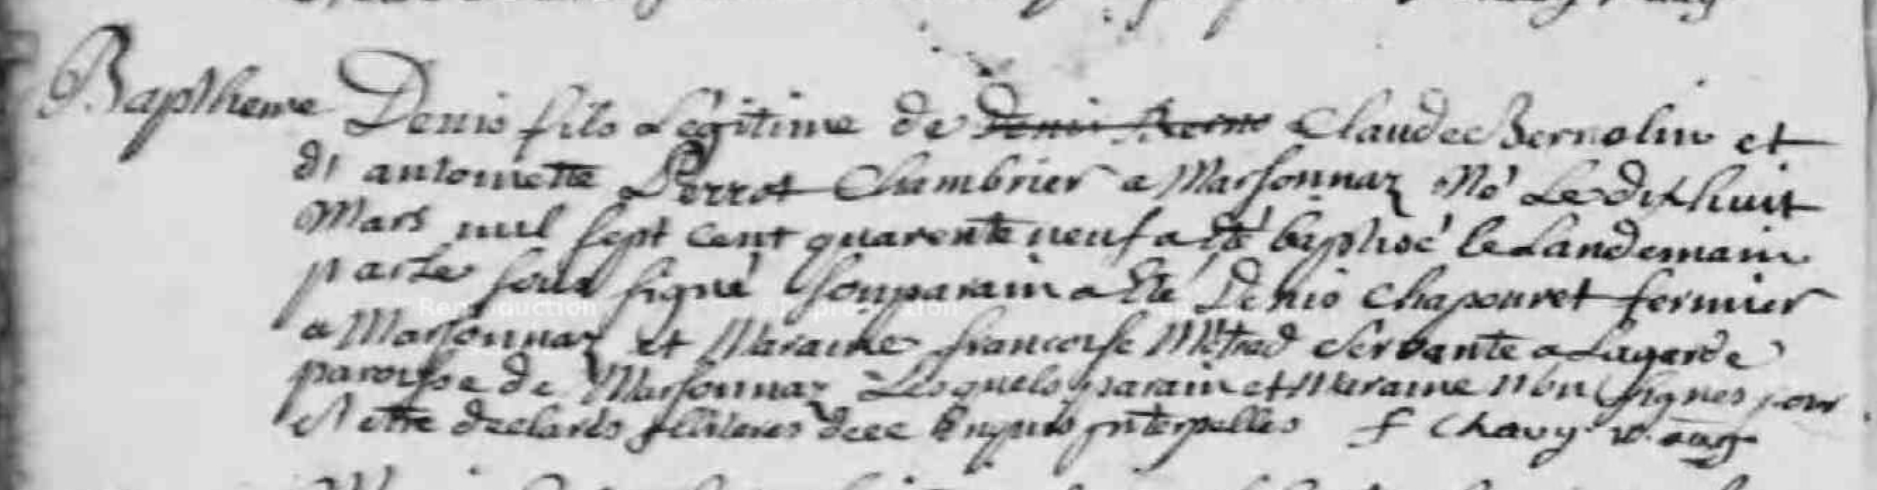 Baptheme Denis fils Légitime de Denis Berno Claude Bernolin et
d'antoinette Perrot Chambrier a Marsonnaz Né Le dix huit
Mars mil sept cent quarente neuf a été baptisé le Landemain
par le sous signé son parain a Eté Denis Chapouret fermier
a Marsonnaz et Maraine francoise Métrad Servante a Lagarde
paroisse de Marsonnaz Lesquels parain et Maraine n'ont signes pour
s'etre declarés illiteres dece Enquis interpelles f Chavy v. aug